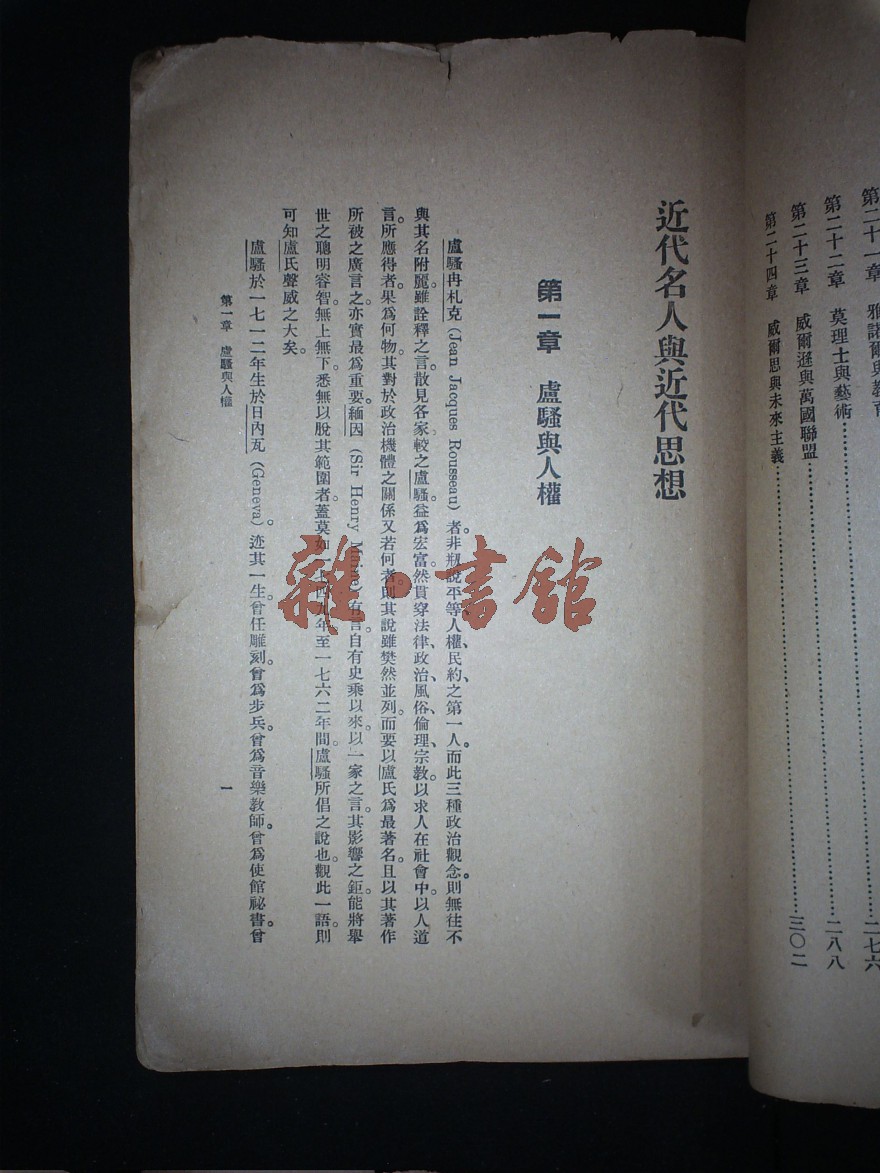 第二十一章　雅諾爾與教育……二七六
第二十二章　莫理士與藝術……二八八
第二十三章　威爾遜與萬國聯盟
第二十四章　威爾思與未來主義……三〇二
近代名人與近代思想
第一章　盧騷與人權
盧騷冉札克 (Jean Jacques Rousseau) 者。非剏說平等、人權、民約、之第一人。而此三種政治觀念。則無往不
與其名附麗。雖詮釋之言。散見各家。較之盧騷。益爲宏富。然貫穿法律、政治、風俗、倫理、宗教。以求人在社會中。以人道
言。所應得者。果爲何物。其對於政治機體之關係又若何者。則其說雖樊然並列。而要以盧氏爲最著名。且以其著作
所被之廣言之。亦實最爲重要。緬因 (Sir Henry Maine) 有言。自有史乘以來。以一家之言。其影響之鉅。能將舉
世之聰明睿智。無上無下。悉無以脫其範圍者。蓋莫如一七四九年至一七六二年間。盧騷所倡之說也。觀此一語。則
可知盧氏聲威之大矣。
盧騷於一七一二年生於日內瓦 (Geneva)。迹其一生。曾任雕刻。曾爲步兵。曾爲音樂教師。曾爲使館祕書。曾
第一章　盧騷與人權
一
雜·書館